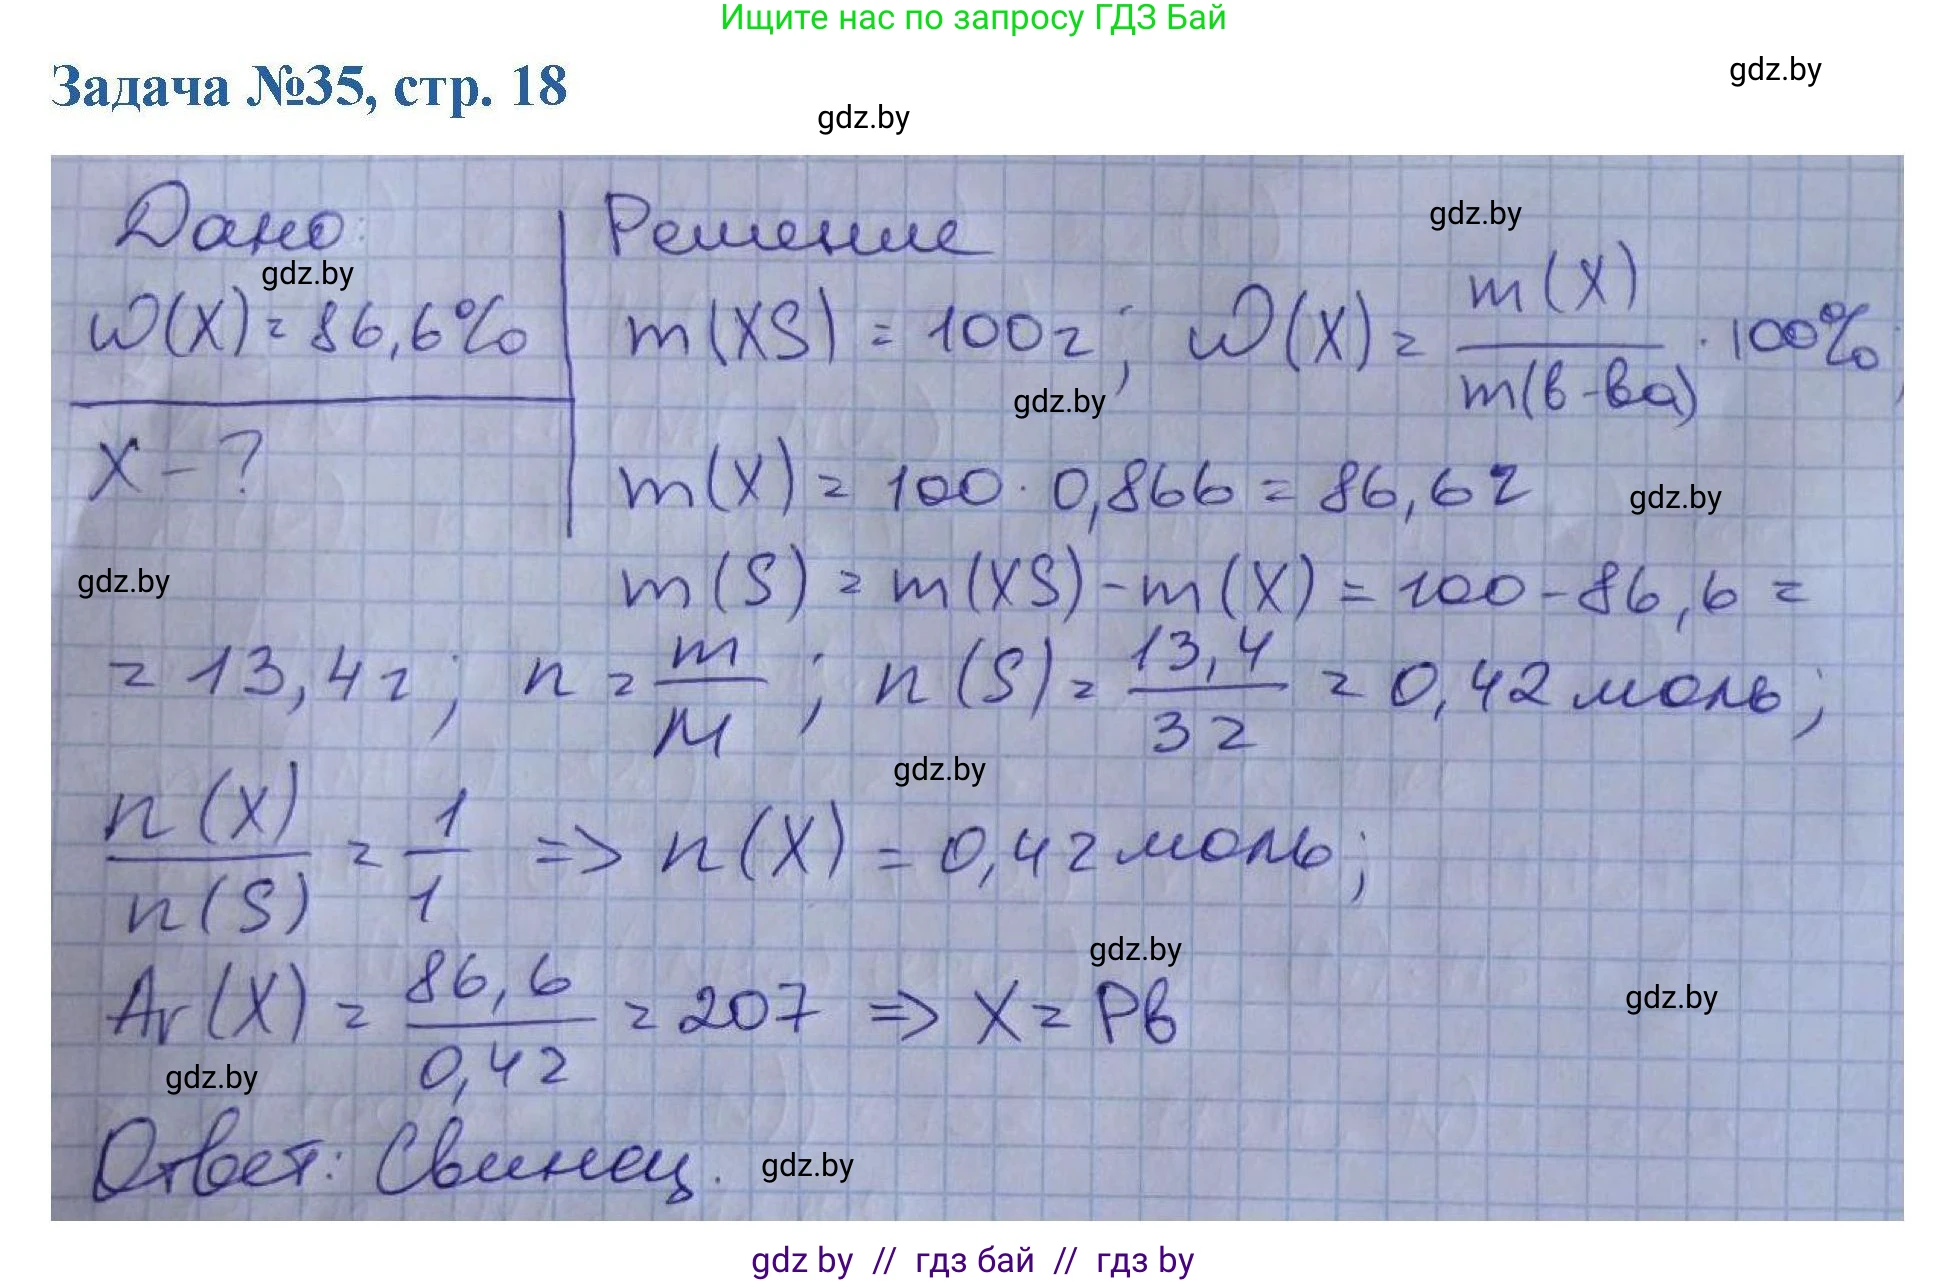 Ищите нас по запросу ГДЗ Бай
Задача №35, стр. 18
gdz.by
gdz.by
Дано: Решение
gdz.by
gdz.by
w(X) = 86,6% m(XS) = 100г; w(X) = m(X) / m(в-ва) · 100%;
gdz.by
X - ? m(X) = 100 · 0,866 = 86,6г
gdz.by
gdz.by
m(S) = m(XS) - m(X) = 100 - 86,6 =
= 13,4г; n = m / M; n(S) = 13,4 / 32 = 0,42 моль;
gdz.by
n(X) / n(S) = 1 / 1 => n(X) = 0,42 моль;
gdz.by
Ar(X) = 86,6 / 0,42 = 207 => X = Pb
gdz.by
gdz.by
Ответ: Свинец.
gdz.by
gdz by // гдз бай // гдз by